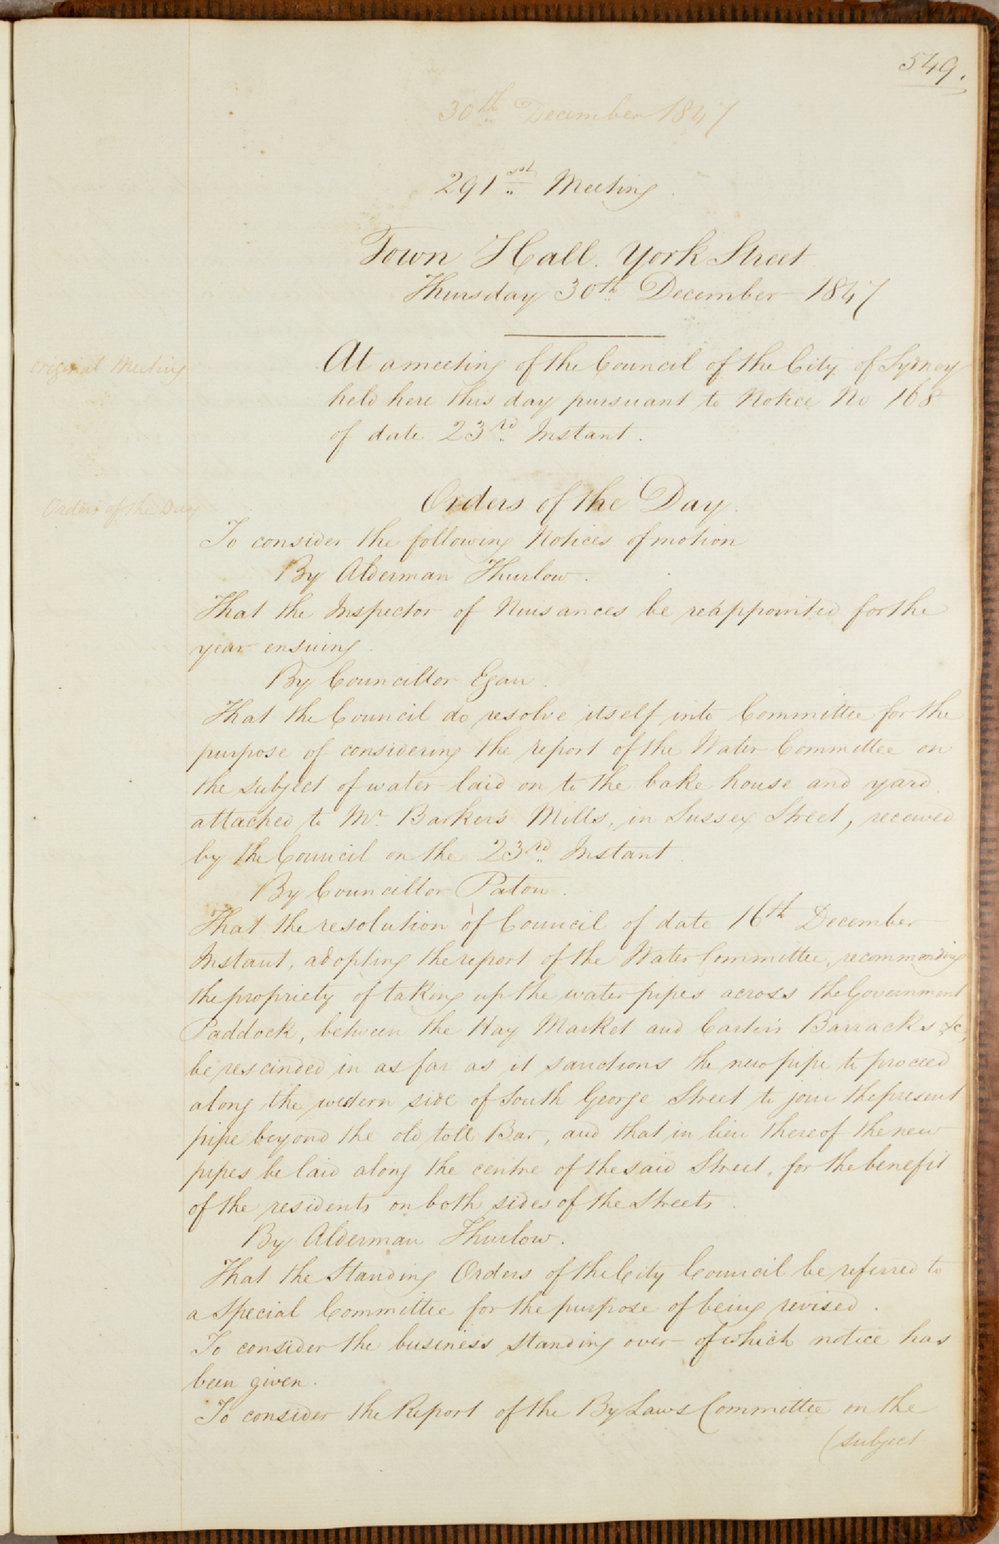 549.
30th December 1847
291st Meeting.
Town Hall. York Street
Thursday 30th December 1847
Original Meeting
At a meeting of the Council of the City of Sydney
held here this day pursuant to Notice No 168
of date 23rd Instant.
Orders of the Day
Orders of the Day.
To consider the following Notices of motion
By Alderman Thurlow.
That the Inspector of Nuisances be reappointed for the
year ensuing.
By Councillor Egan.
That the Council do resolve itself into Committee for the
purpose of considering the report of the Water Committee on
the subject of water laid on to the bake house and yard
attached to Mr. Barkers Mills, in Sussex Street, received
by the Council on the 23rd Instant.
By Councillor Paton.
That the resolution of Council of date 16th December
Instant, adopting the report of the Water Committee, recommending
the propriety of taking up the water pipes across the Government
Paddock, between the Hay Market and Carters Barracks &c,
be rescinded in as far as it sanctions the new pipe to proceed
along the western side of South George Street to join the present
pipe beyond the old toll Bar, and that in lieu thereof the new
pipes be laid along the centre of the said Street, for the benefit
of the residents on both sides of the Streets.
By Alderman Thurlow.
That the Standing Orders of the City Council be referred to
a Special Committee for the purpose of being revised.
To consider the business standing over of which notice has
been given.
To consider the Report of the By Laws Committee on the
(subject